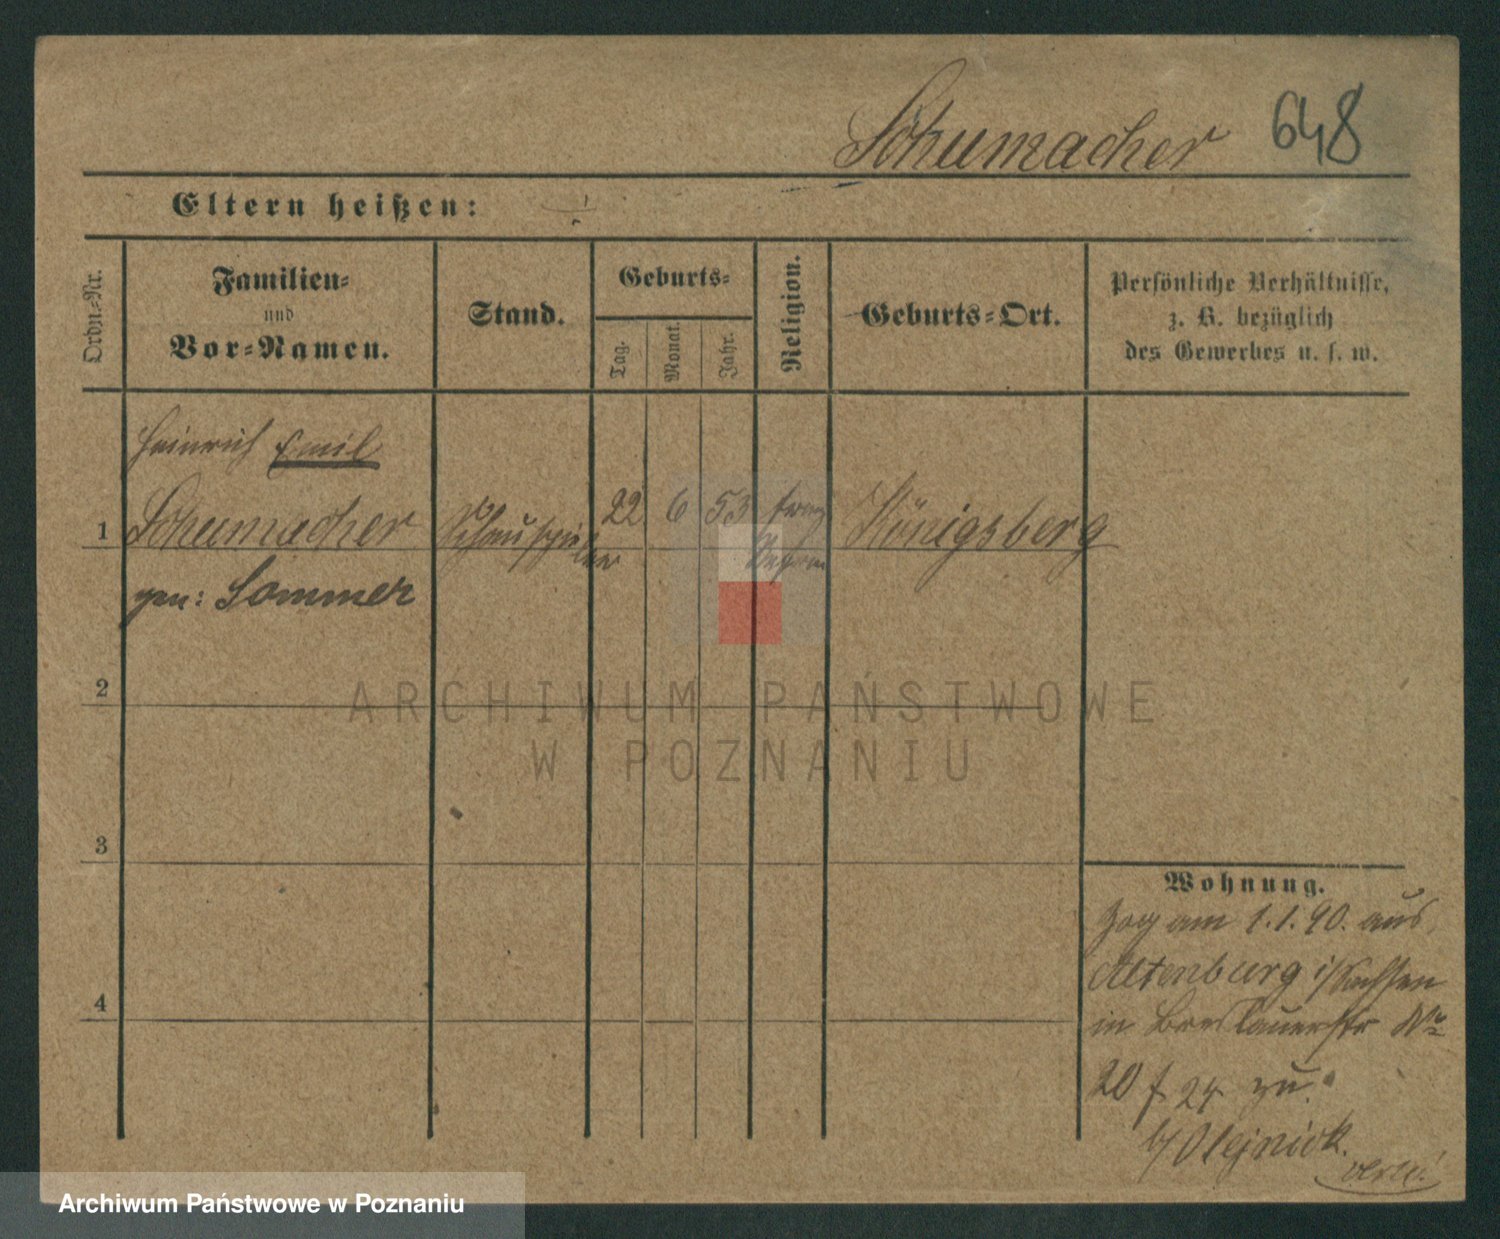 Schumacher 648
Eltern heißen:
Ordn=Nr.
Familien=
und
Vor=Namen.
Stand.
Geburts=
Tag.
Monat.
Jahr.
Religion.
Geburts=Ort.
Persönliche Verhältnisse,
z. B. bezüglich
des Gewerbes u. s. w.
Heinrich Emil
1 Schumacher Schauspie 22 6 53 evang Königsberg
ler Reform
gen: Sommer
2
3
4
Wohnung.
Zog am 1.1.90. aus
Altenburg i/Sachsen
in Breslauerstr No
20 f 24 zu.
b/ Olejnick.
ARCHIWUM PAŃSTWOWE
W POZNANIU
Archiwum Państwowe w Poznaniu